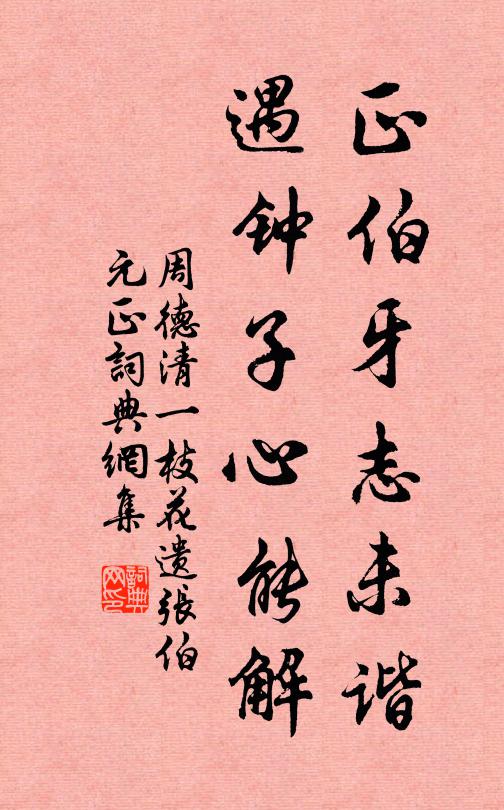 正伯牙志未谐
遇钟子心能解
周德清一枝花遗張伯
元正詞典網集
詞典网印